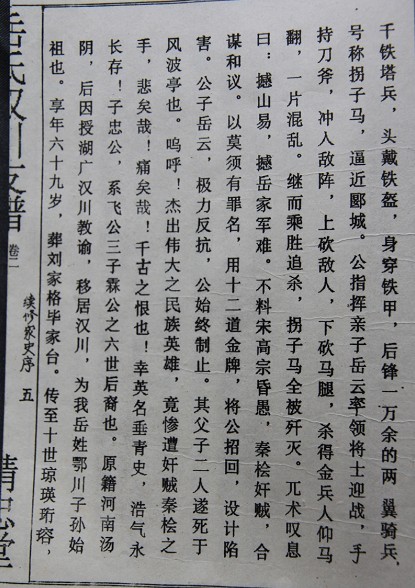 千铁塔兵，头戴铁盔，身穿铁甲，后锋一万余的两翼骑兵，
号称拐子马，逼近郾城。公指挥亲子岳云率领将士迎战，手
持刀斧，冲人敌阵，上砍敌人，下砍马腿，杀得金兵人仰马
翻，一片混乱。继而乘胜追杀，拐子马全被歼灭。兀术叹息
曰：撼山易，撼岳家军难。不料宋高宗昏愚，秦桧奸贼，合
谋和议。以莫须有罪名，用十二道金牌，将公招回，设计陷
害。公子岳云，极力反抗，公始终制止。其父子二人遂死于
风波亭也。呜呼！杰出伟大之民族英雄，竟惨遭奸贼秦桧之
手，悲矣哉！痛矣哉！千古之恨也！幸英名垂青史，浩气永
长存！子忠公，系飞公三子霖公之六世后裔也。原籍河南汤
阴，后因授湖广汉川教谕，移居汉川，为我岳姓鄂川子孙始
祖也。享年六十九岁，葬刘家格毕家台。传至十世琼瑛珩瑢，
岳氏汉川支谱 卷二 续修家史序 五 精忠堂